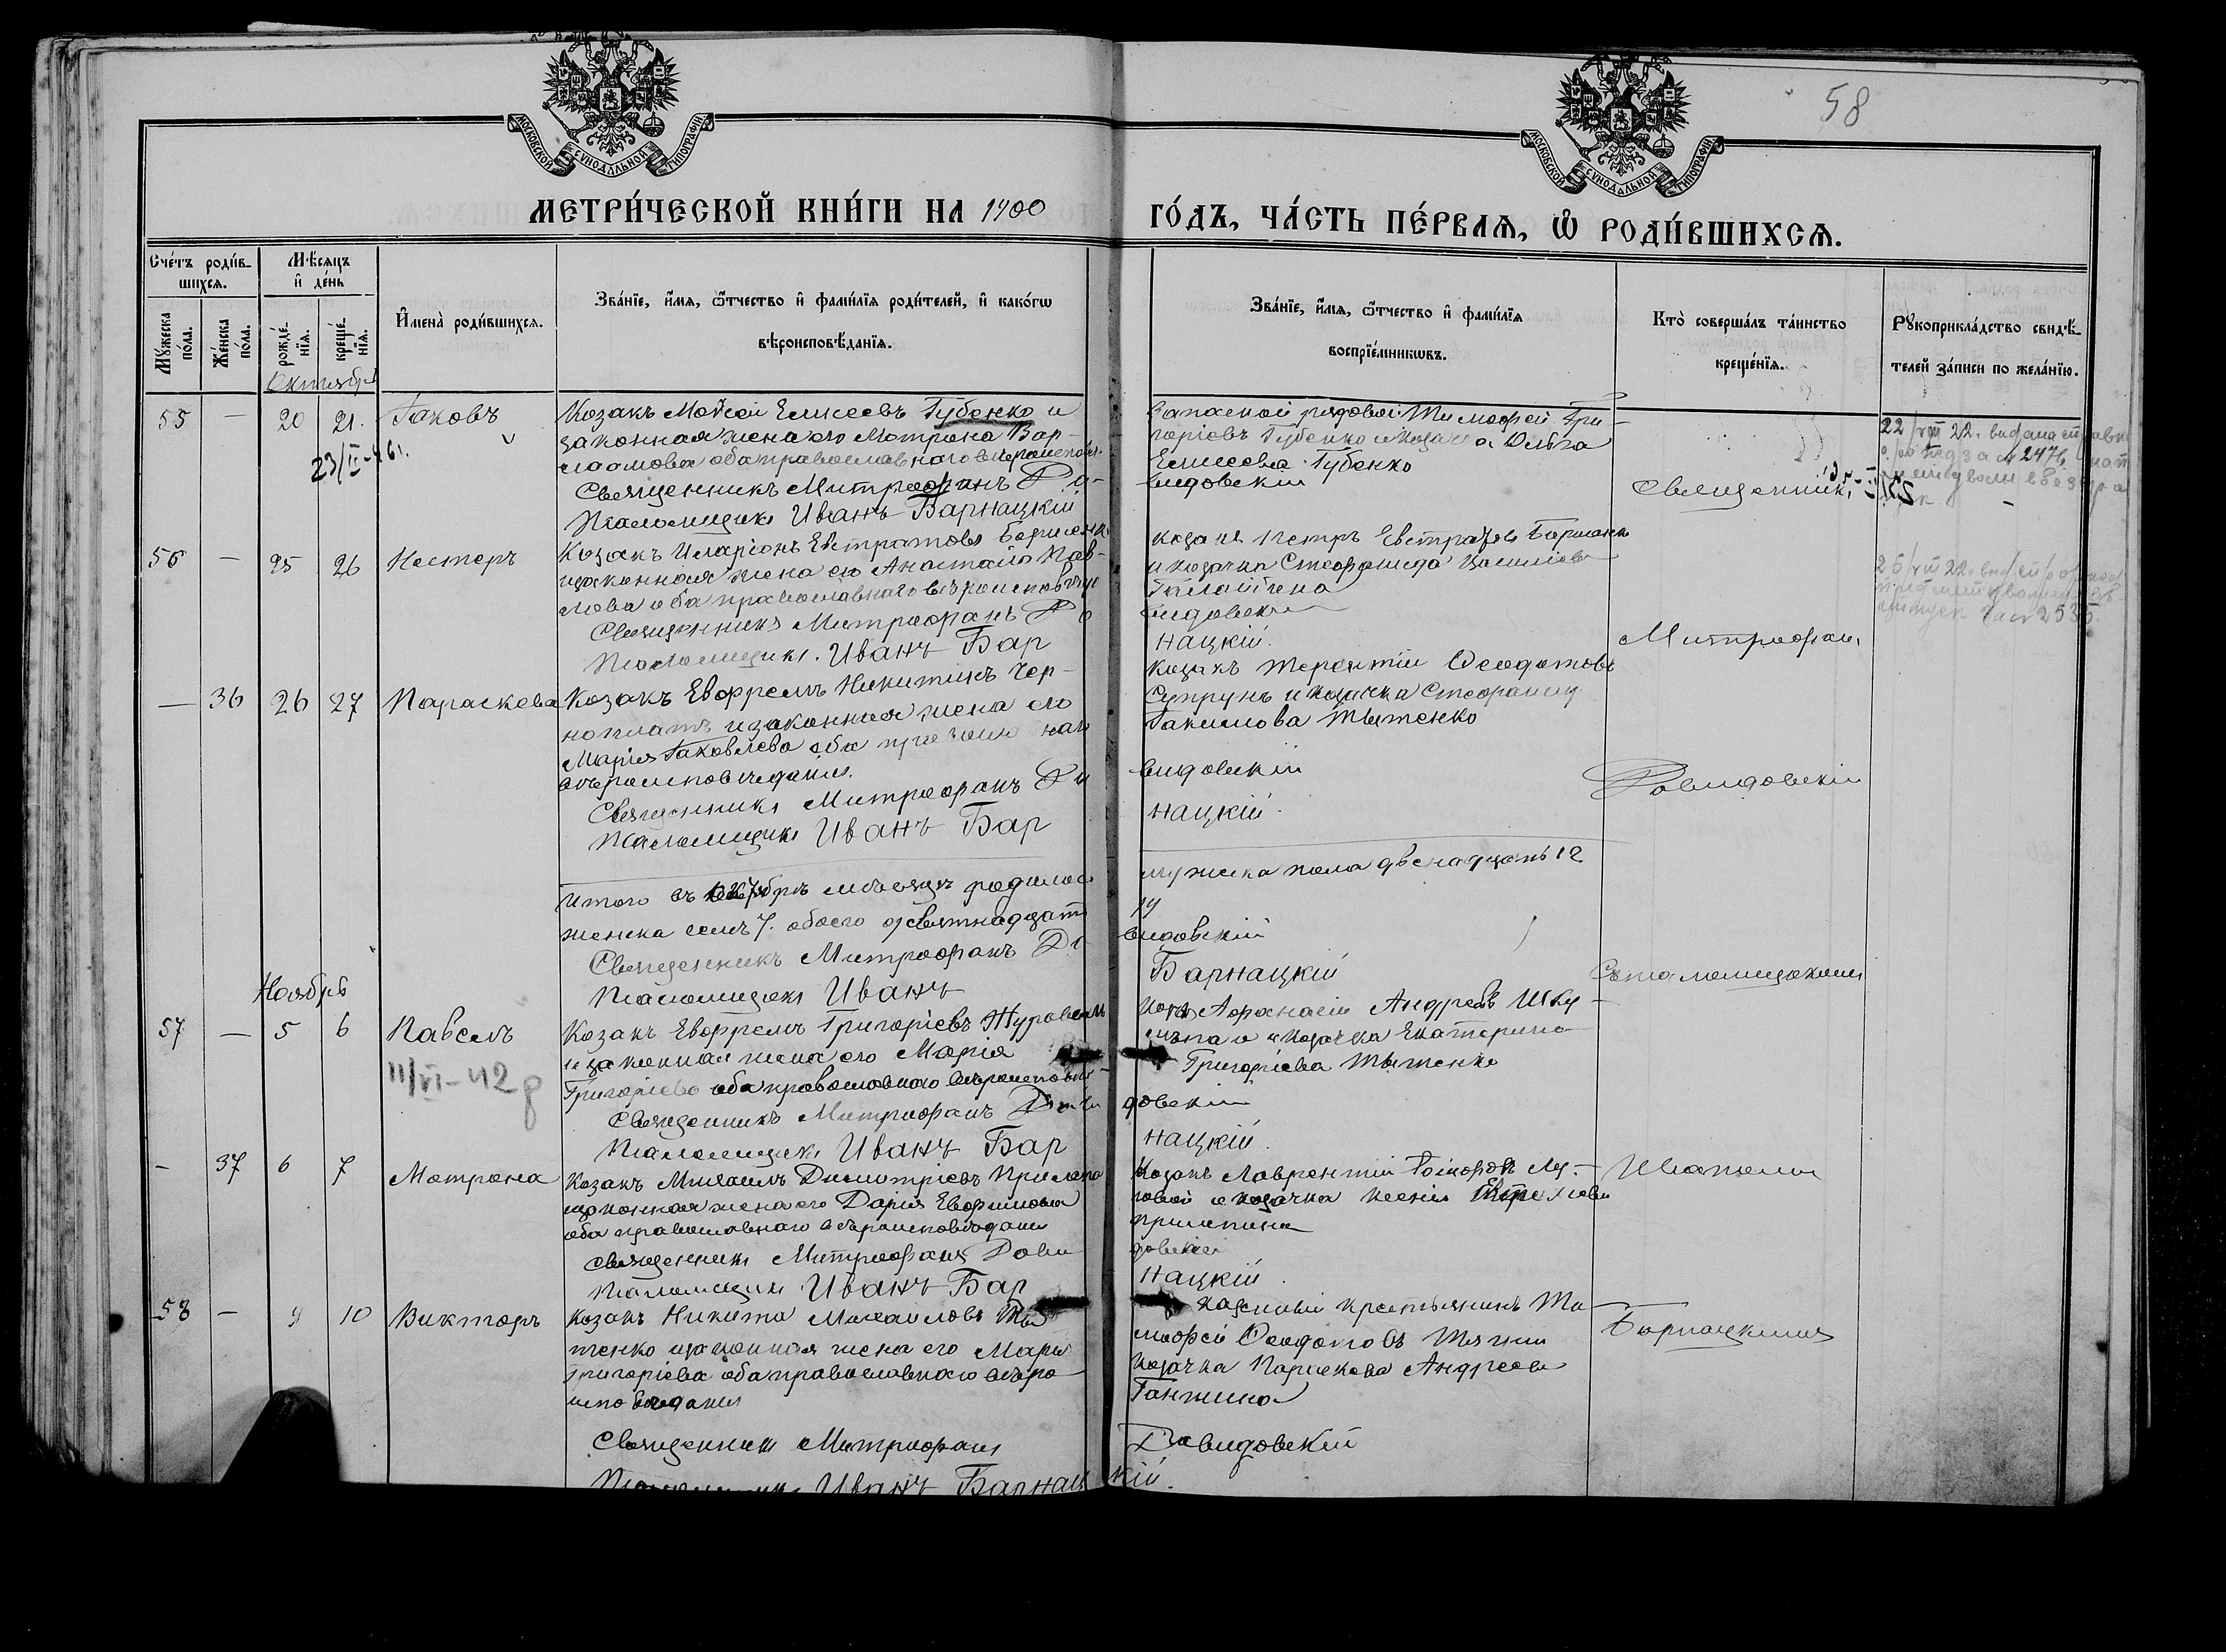 58
МОСКОВСКОЙ СУНОДАЛЬНОЙ ТИПОГРАФІИ
МОСКОВСКОЙ СУНОДАЛЬНОЙ ТИПОГРАФІИ
МЕТРИ́ЧЕСКОЙ КНИ́ГИ НА 1900
ГО́ДЪ, ЧА́СТЬ ПЕ́РВАѦ, Ѡ РОДИ́ВШИХСѦ.
Сче́тъ роди́в-
шихсѧ.
Мꙋ́жеска по́ла.
Же́нска по́ла.
Мѣ́сѧцъ
и҆ де́нь
рожде́-
нїѧ.
креще́-
нїѧ.
И҆мена̀ роди́вшихсѧ.
Зва́нїе, и҆́мѧ, ѻ҆́тчество и҆ фами́лїѧ роди́телей, и҆ како́гѡ
вѣроисповѣ́данїѧ.
Зва́нїе, и҆́мѧ, ѻ҆́тчество и҆ фами́лїѧ
воспрїе́мникѡвъ.
Кто̀ соверша́лъ та́инство
креще́нїѧ.
Рꙋкоприкла́дство свидѣ́-
телей за́писи по жела́нїю.
Октябрь
55 — 20 21. Іаковъ
23/II-26г.
Козакъ Мойсей Елисеевъ Губенко и
законная жена его Мотрона Вар-
лаамова оба православнаго вѣроисповѣд.
Священникъ Митрофанъ Да-
Псаломщикъ Иванъ Барнацкій
Запасной рядовой Тимофей Гри-
горіевъ Губенко и козачка Ольга
Елисеева Губенко
видовскій
Священник
22/VIII 22. видана справка
за № 2476
56 — 25 26 Нестеръ
Козакъ Иларіонъ Евстратовъ Борисенк
и законная жена его Анастасія Пав-
лова оба православнаго вѣроисповѣда
Священникъ Митрофанъ Да
Псаломщикъ. Иванъ Бар
козакъ Петръ Евстратовъ Борисенко
и козачка Стефанида
видовскій
нацкій.
Митрофан
25/VIII 22.
2535.
— 36 26 27 Параскева
Козакъ Евфремъ Никитинъ Чер-
ноплатъ и законная жена его
Марія Іаковлева оба православнаго
вѣроисповѣданія.
Священникъ Митрофанъ Да
Псаломщикъ Иванъ Бар
Козакъ Терентій Феодотовъ
Супрунъ и козачка Стефанида
Іакимова Тытенко
видовскій
нацкій.
Давидовскій
Итого въ октябрѣ мѣсяцѣ родилось
мужска пола двенадцать 12
женска семь 7. обоего девятнадцать
19
Священникъ Митрофанъ Да
видовскій
Псаломщикъ Иванъ
Барнацкій
Съ псаломщикомъ
Ноябрь
57 — 5 6 Павелъ
11/VI-42
Козакъ Евфремъ Григоріевъ Журавель
и законная жена его Марія
Григоріева оба православнаго вѣроисповѣд-
Священникъ Митрофанъ Дави
Псаломщикъ Иванъ Бар
Афанасій Андреевъ
и козачка Екатерина
Григоріева Тытенко
довскій
нацкій.
— 37 6 7 Мотрона
Козакъ Михаилъ Димитріевъ Прилепа
и законная жена его Дарія Евфимова
оба православнаго вѣроисповѣданія
Священникъ Митрофанъ Дави
Псаломщикъ Иванъ Бар
Козакъ Лаврентій
и козачка Ксенія
Прилепина
довскій
нацкій.
Иваномъ
58 — 9 10 Викторъ
Козакъ Никита Михаиловъ Ты
тенко и законная жена его Марія
Григоріева оба православнаго вѣро-
исповѣданія
Священникъ Митрофанъ
Псаломщикъ Иванъ Барнац
казенный крестьянинъ Ти
мофей Феодотовъ
козачка Параскева Андреева
Ганжина
Давидовскій
кій.
Барнацкимъ